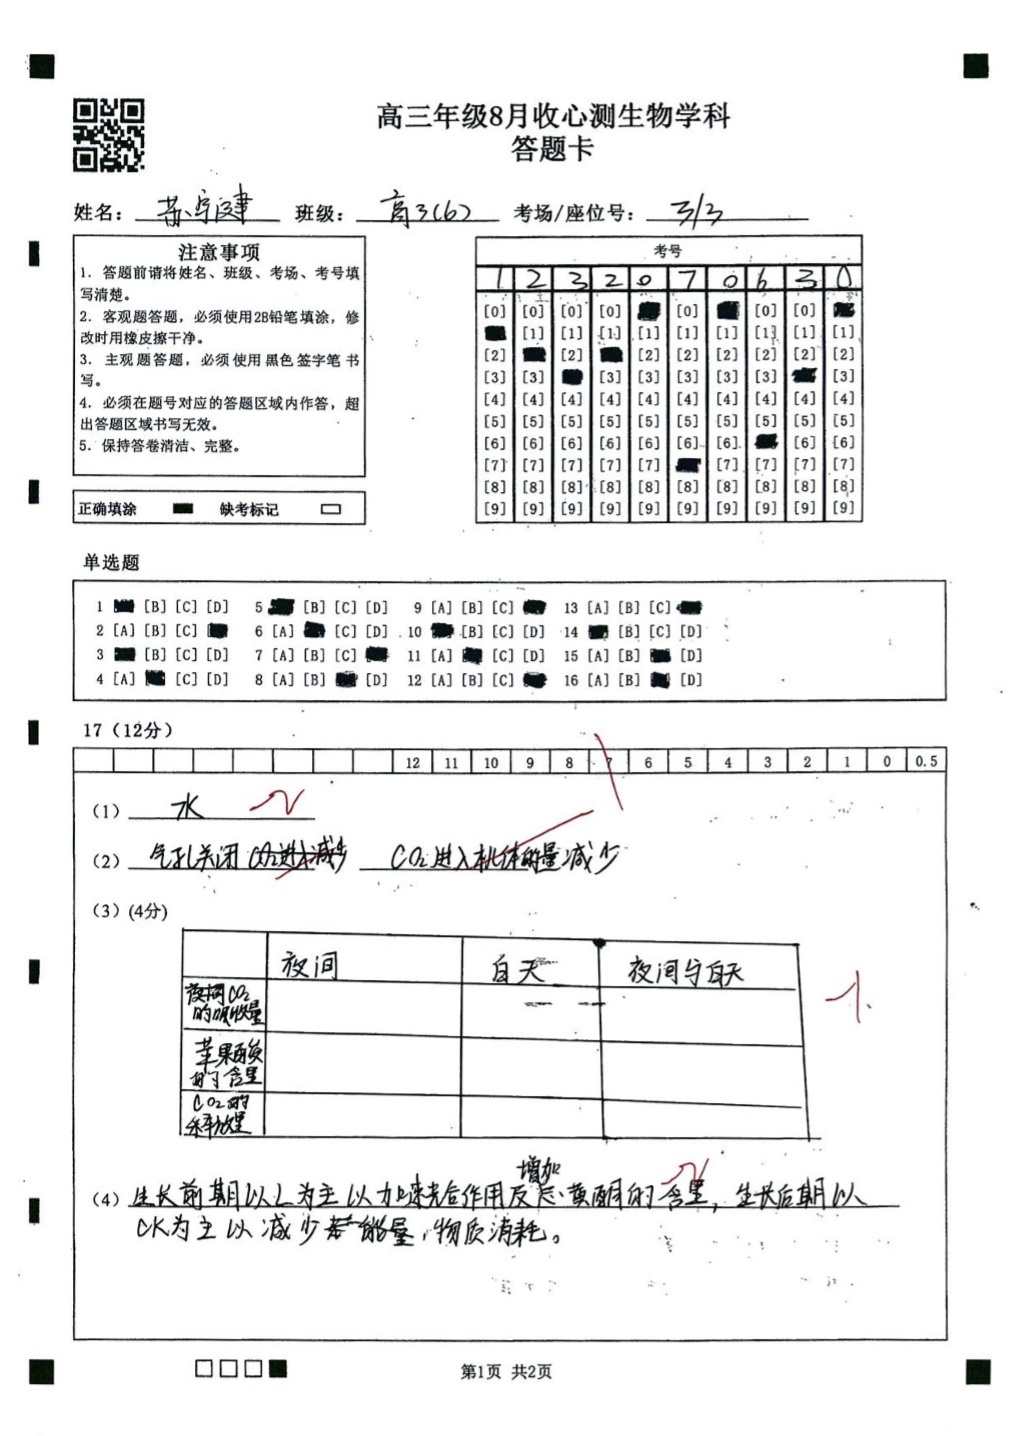 高三年级8月收心测生物学科
答题卡
姓名： 苏宇建 班级： 高3(6) 考场/座位号： 3/3
注意事项
1. 答题前请将姓名、班级、考场、考号填
写清楚。
2. 客观题答题，必须使用2B铅笔填涂，修
改时用橡皮擦干净。
3. 主观题答题，必须使用黑色签字笔书
写。
4. 必须在题号对应的答题区域内作答，超
出答题区域书写无效。
5. 保持答卷清洁、完整。
正确填涂 缺考标记
考号
1 2 3 2 0 7 0 6 3 0
[0] [0] [0] [0] [0] [0] [0]
[1] [1] [1] [1] [1] [1] [1] [1] [1]
[2] [2] [2] [2] [2] [2] [2] [2]
[3] [3] [3] [3] [3] [3] [3] [3]
[4] [4] [4] [4] [4] [4] [4] [4] [4] [4]
[5] [5] [5] [5] [5] [5] [5] [5] [5] [5]
[6] [6] [6] [6] [6] [6] [6] [6] [6]
[7] [7] [7] [7] [7] [7] [7] [7] [7]
[8] [8] [8] [8] [8] [8] [8] [8] [8] [8]
[9] [9] [9] [9] [9] [9] [9] [9] [9] [9]
单选题
1 [B] [C] [D] 5 [B] [C] [D] 9 [A] [B] [C] 13 [A] [B] [C]
2 [A] [B] [C] 6 [A] [C] [D] 10 [B] [C] [D] 14 [B] [C] [D]
3 [B] [C] [D] 7 [A] [B] [C] 11 [A] [C] [D] 15 [A] [B] [D]
4 [A] [C] [D] 8 [A] [B] [D] 12 [A] [B] [C] 16 [A] [B] [D]
17（12分）
12 11 10 9 8 7 6 5 4 3 2 1 0 0.5
（1） 水
（2） 气孔关闭 CO₂进入减少 CO₂进入机体的量减少
（3）(4分)
夜间 白天 夜间与白天
夜间CO₂
的吸收量
苹果酸
的含量
CO₂的
释放量
增加
（4）生长前期以L为主以加速光合作用反应 黄酮的含量，生长后期以
CK为主以减少 能量，物质消耗。
第1页 共2页